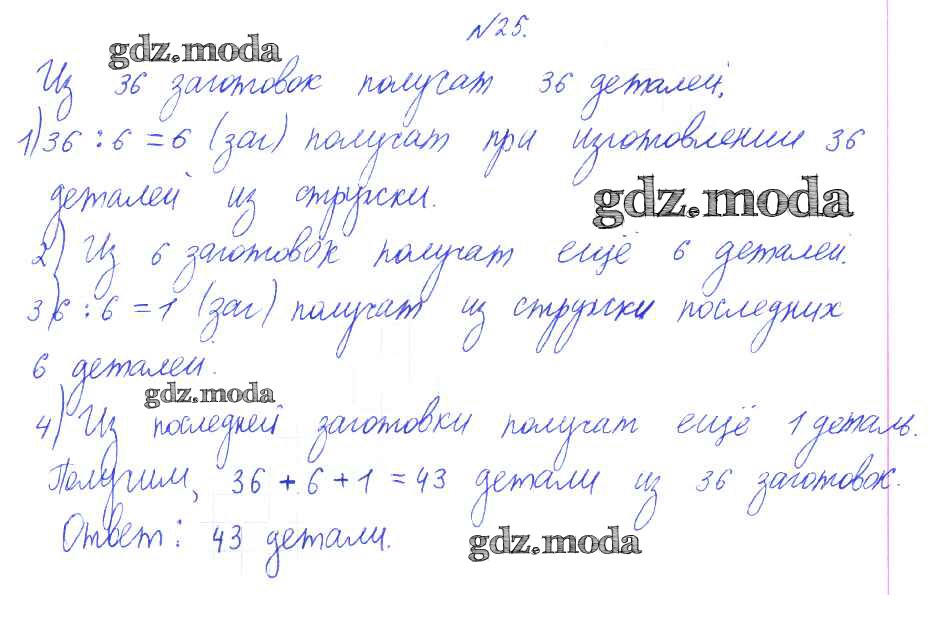 №25.
gdz.moda
Из 36 заготовок получат 36 деталей,
1) 36 : 6 = 6 (заг) получат при изготовлении 36
деталей из стружки.
gdz.moda
2) Из 6 заготовок получат ещё 6 деталей.
3) 6 : 6 = 1 (заг) получат из стружки последних
6 деталей.
gdz.moda
4) Из последней заготовки получат ещё 1 деталь.
Получим, 36 + 6 + 1 = 43 детали из 36 заготовок.
Ответ: 43 детали.
gdz.moda